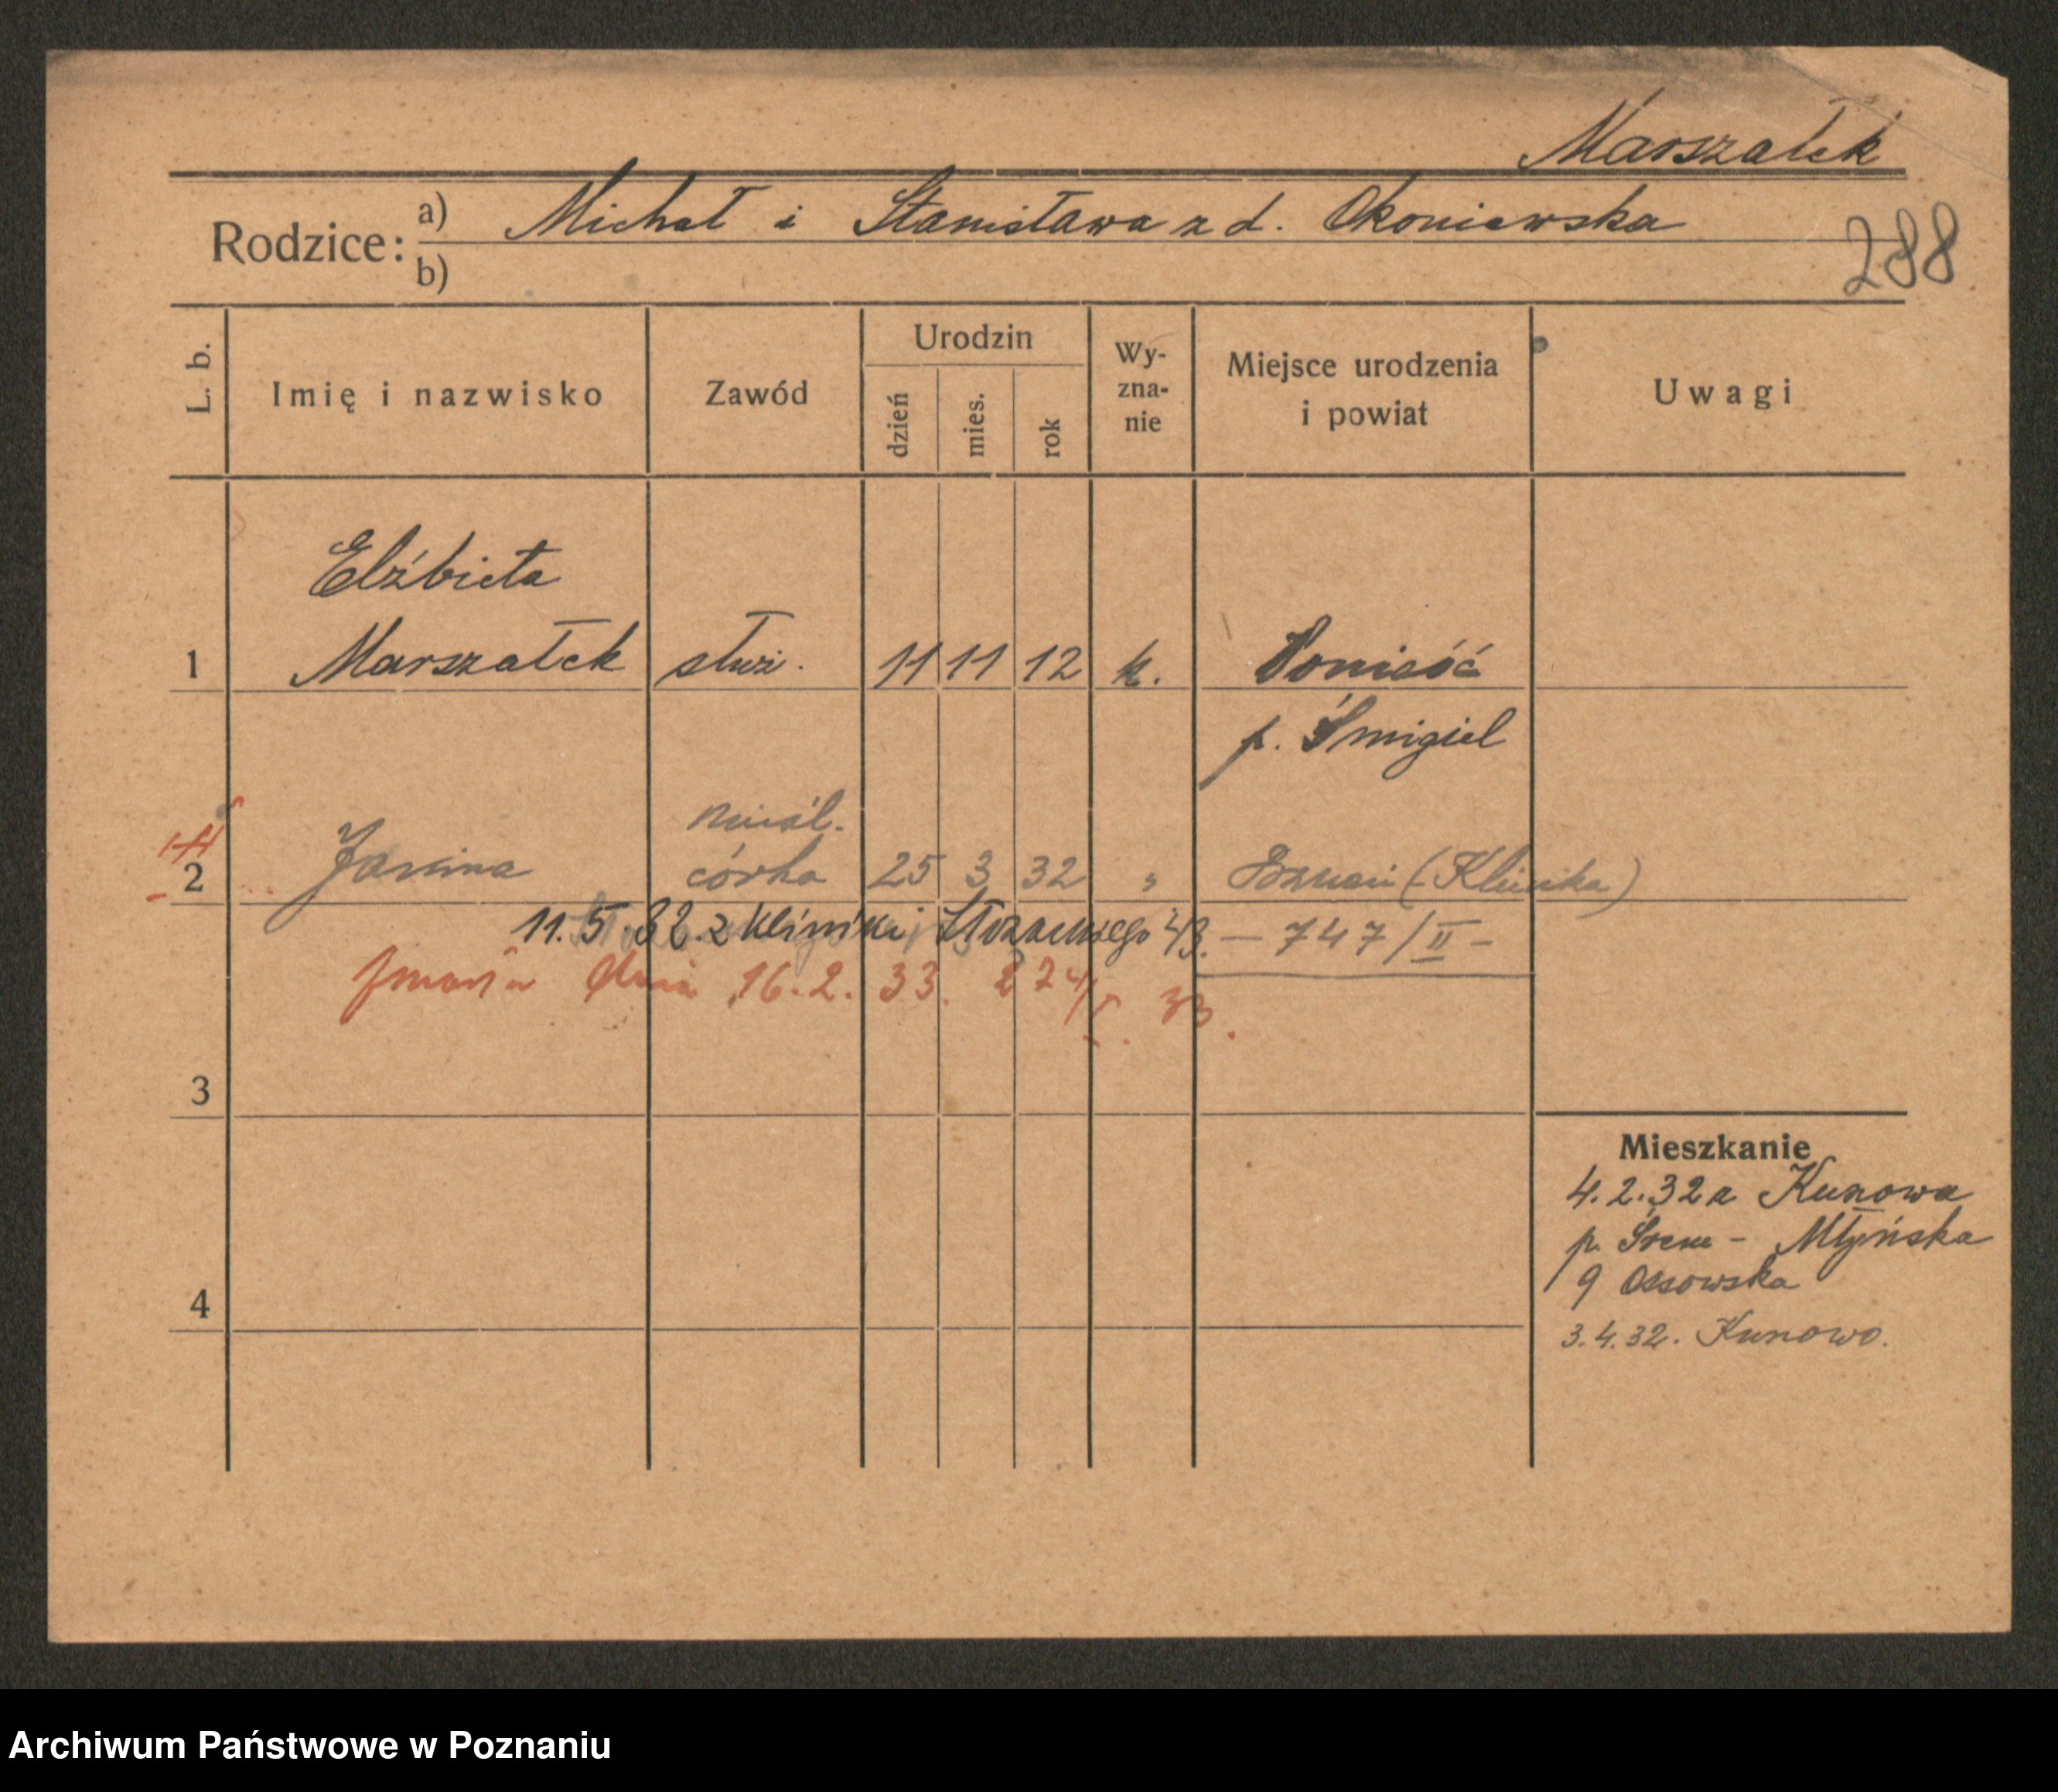 Marszałek
Rodzice: a) Michał i Stanisława z d. Okoniewska
b)
288
L. b.
Imię i nazwisko
Zawód
Urodzin
dzień
mies.
rok
Wy-
zna-
nie
Miejsce urodzenia
i powiat
Uwagi
Elżbieta
1 Marszałek służ. 11 11 12 k. Woniość
p. Śmigiel
nieśl.
2 Janina córka 25 3 32 " Poznań (Klinika)
11. 5. 32. z kliniki, 43. — 747/II —
Zmarła dnia 16. 2. 33. 274/I. 33.
3
4
Mieszkanie
4. 2. 32 z Kunowa
p. Śrem - Młyńska
9 Ossowska
3. 4. 32. Kunowo.
Archiwum Państwowe w Poznaniu